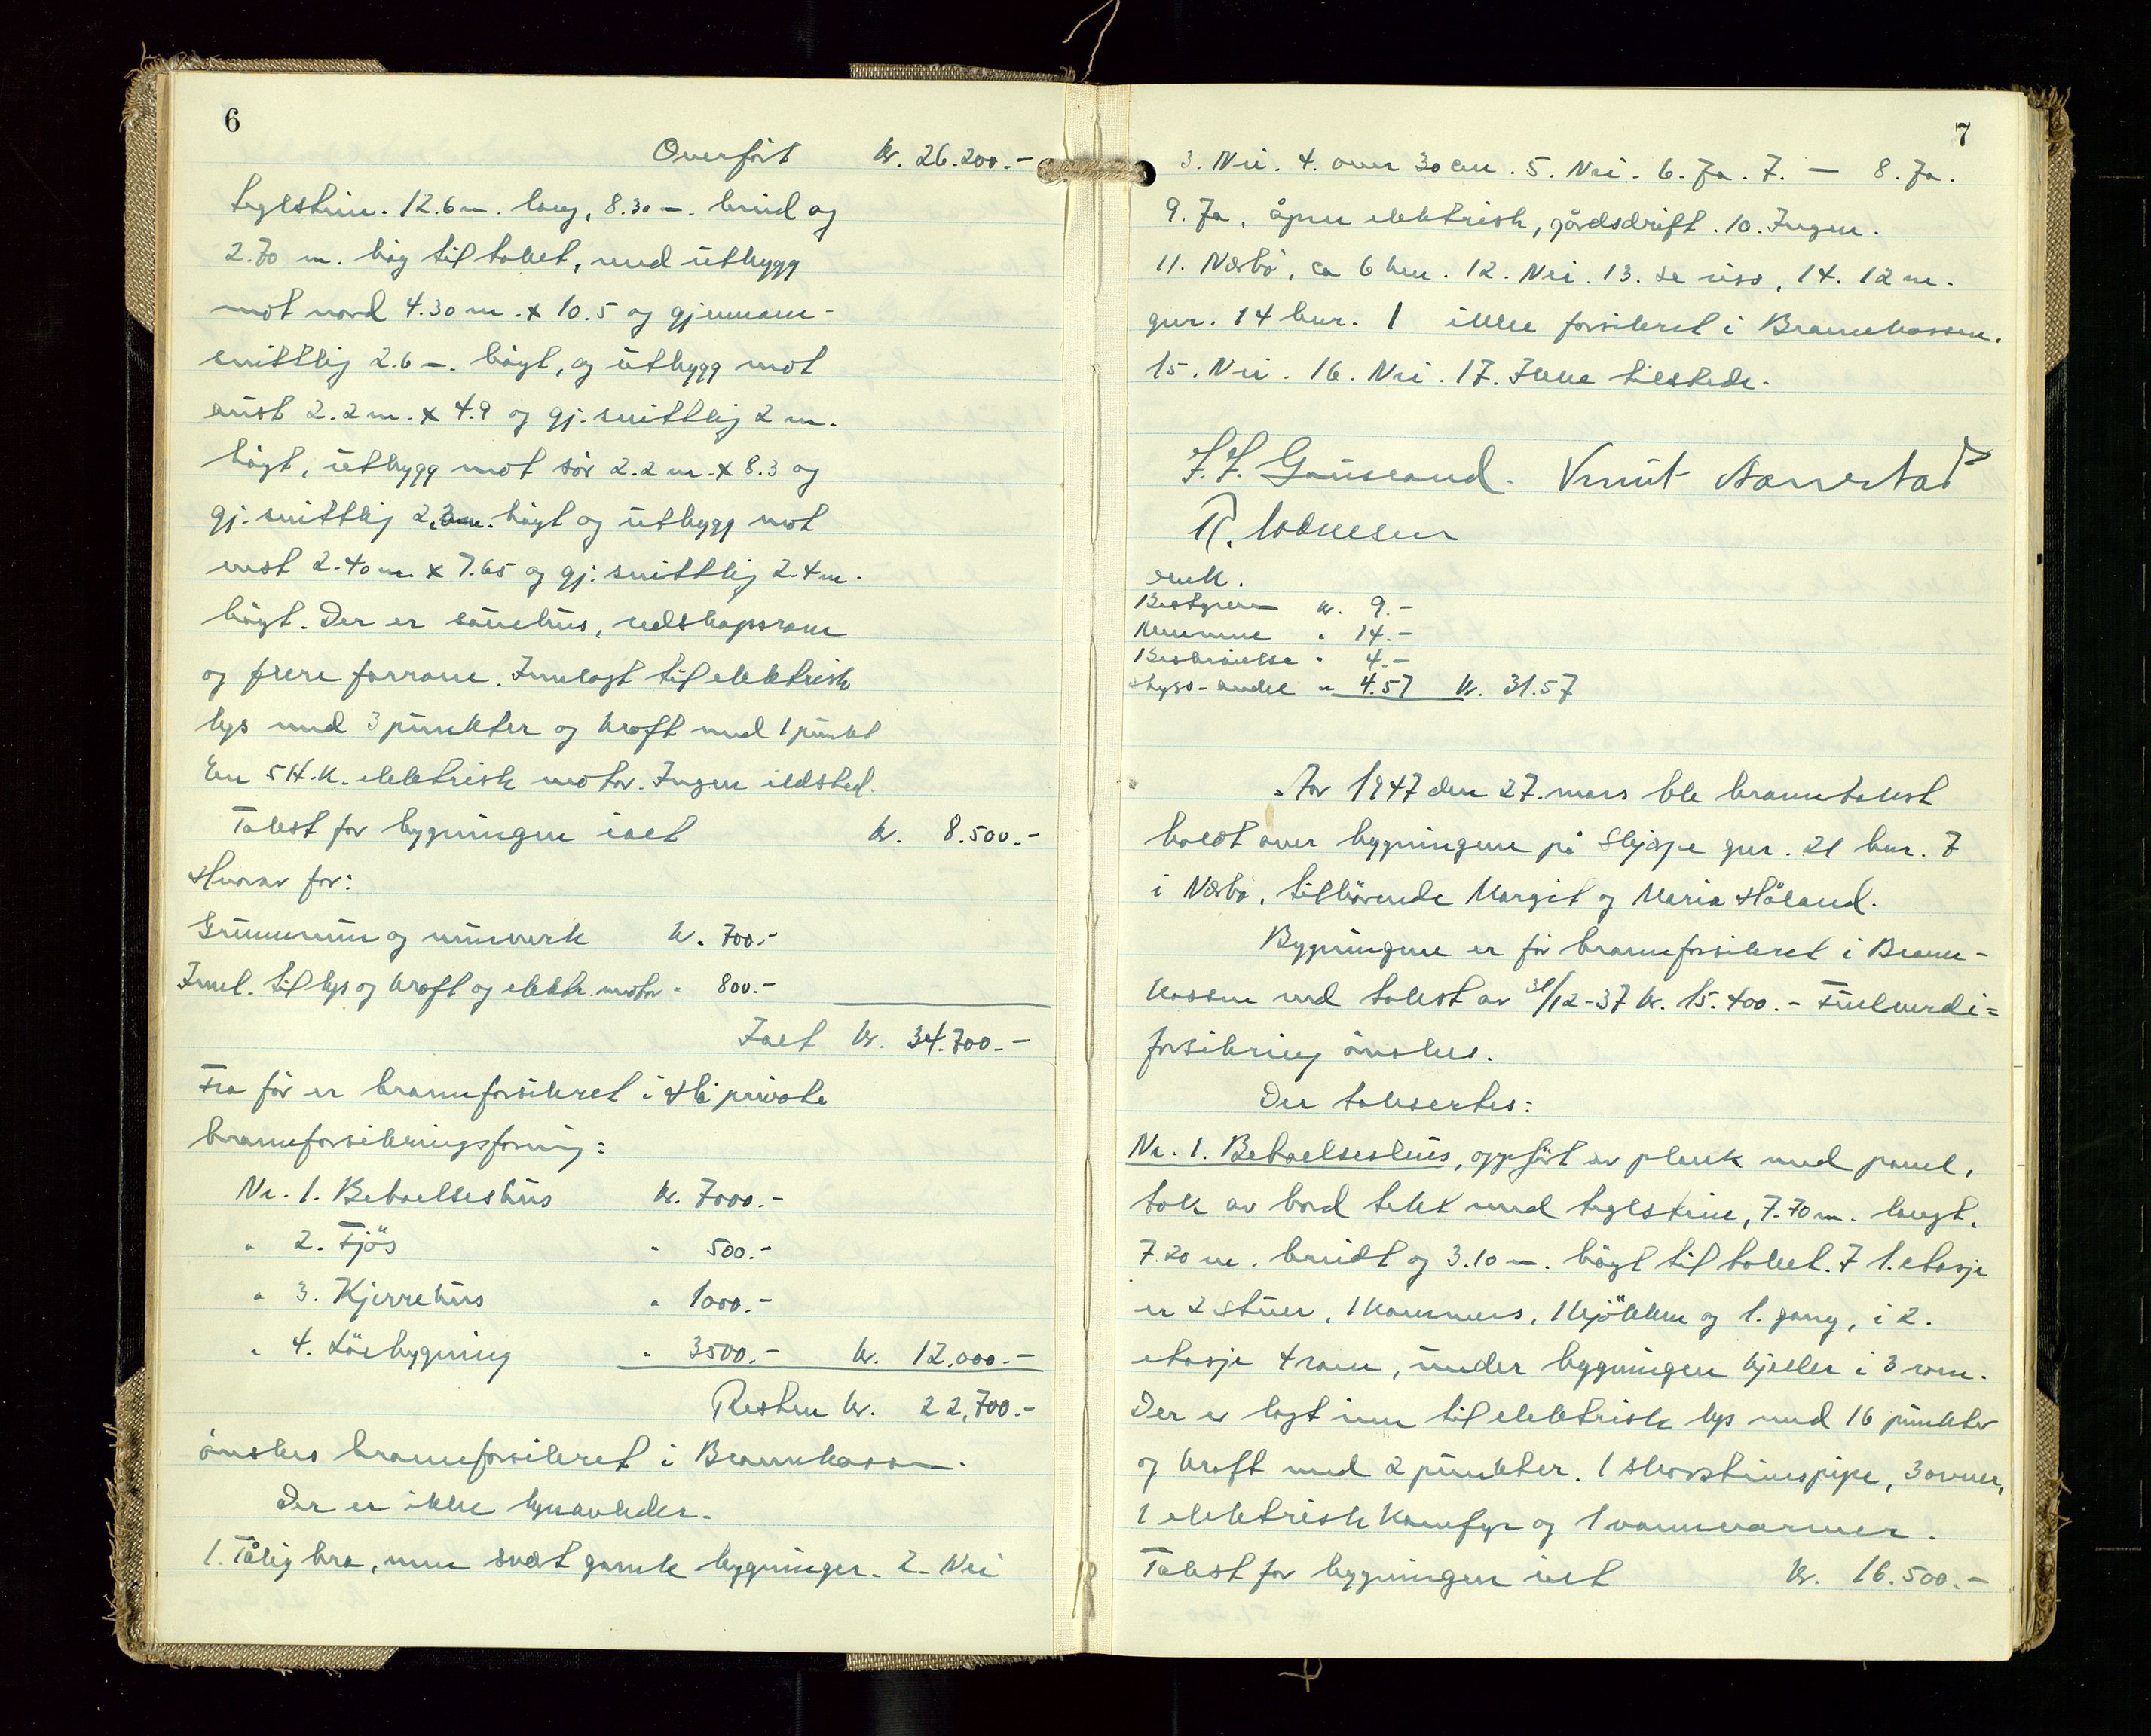 6
Overført kr. 26.200.-
teglstein. 12.6 m. lang, 8.30 m. breid og
2.70 m. høg til taket, med utbygg
mot nord 4.30 m. x 10.5 og gjennom-
snittlig 2.6 m. høgt, og utbygg mot
aust 2.2 m. x 4.9 og gj.snittlig 2 m.
høgt, utbygg mot sør 2.2 m. x 8.3 og
gj.snittlig 2,3 m. høgt og utbygg mot
vest 2.40 m x 7.65 og gj.snittlig 2.4 m.
høgt. Der er sauehus, redskapsrom
og flere forrom. Innlagt til elektrisk
lys med 3 punkter og kraft med 1 punkt
En 5 H.K. elektrisk motor. Ingen ildsted.
Takst for bygningen ialt kr. 8.500.-
Hvorav for:
Grunnmur og murverk kr. 700.-
Innl. til lys og kraft og elektr. motor " 800.-
Ialt kr. 34.700.-
Fra før er brannforsikret i Hå private
brannforsikringsforening:
Nr. 1. Beboelseshus kr. 7000.-
" 2. Fjös " 500.-
" 3. Kjerrehus " 1000.-
" 4. Löebygning " 3500.- kr. 12.000.-
Resten kr. 22,700.-
ønskes brannforsikret i Brannkassen.
Der er ikke lynavleder.
1. Tålig bra, men svært gamle bygninger. 2. Nei
7
3. Nei. 4. over 30 cm. 5. Nei. 6. Ja. 7. — 8. Ja.
9. Ja, åpen elektrisk, gårdsdrift. 10. Ingen.
11. Nærbø, ca 6 km. 12. Nei. 13. se riss, 14. 12 m.
gnr. 14 bnr. 1 ikke forsikret i Brannkassen.
15. Nei. 16. Nei. 17. Ikke tilstede.
J. J. Gauseland. Knut Aanestad
R.
omk.
Bestyreren kr. 9.-
Mennene " 14.-
Beskrivelse " 4.-
Skyss-andel " 4.57 kr. 31.57
År 1947 den 27. mars ble branntakst
holdt over bygningene på Skjæpe gnr. 21 bnr. 7
i Nærbø, tilhørende Margit og Maria Håland.
Bygningene er før brannforsikret i Brann-
kassen ved takst av 31/12-37 kr. 15.400.- Fullverdi=
forsikring ønskes.
Der taksertes:
Nr. 1. Beboelseshus, oppført av plank med panel,
tak av bord tekt med teglstein, 7.70 m. langt,
7.20 m. breidt og 3.10 m. høgt til taket. I 1. etasje
er 2 stuer, 1 kammers, 1 kjökken og 1. gang, i 2.
etasje 4 rom, under bygningen kjeller i 3 rom.
Der er lagt inn til elektrisk lys med 16 punkter
og kraft med 2 punkter. 1 skorsteinspipe, 3 ovner,
1 elektrisk komfyr og 1 vannvarmer.
Takst for bygningen ialt kr. 16.500.-